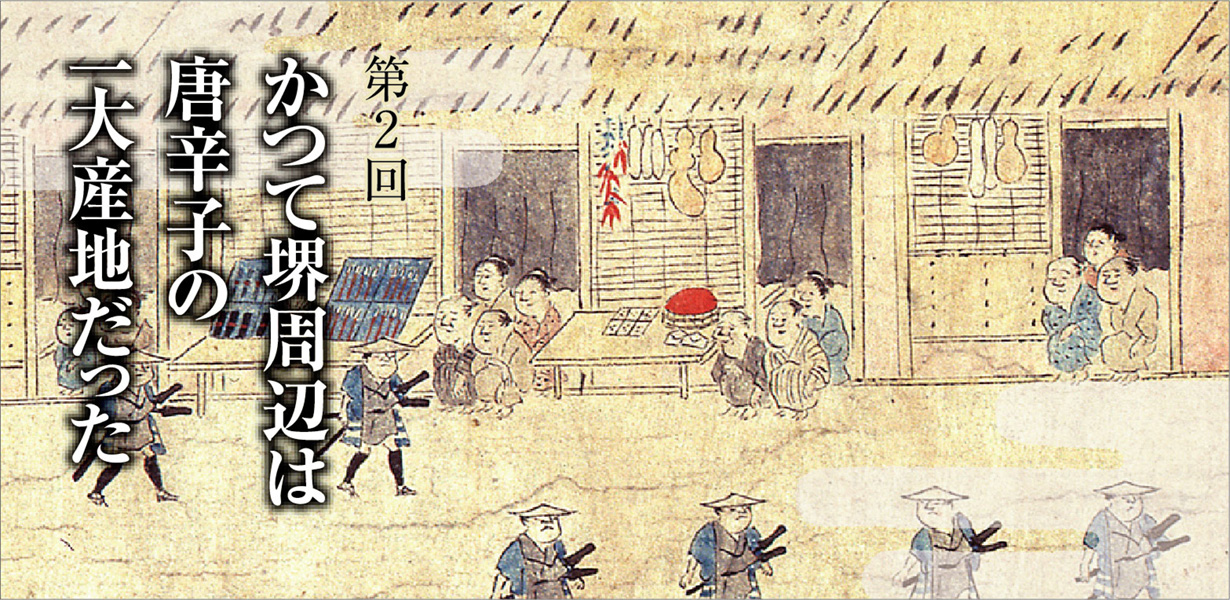 第2回
かつて堺周辺は
唐辛子の
一大産地だった